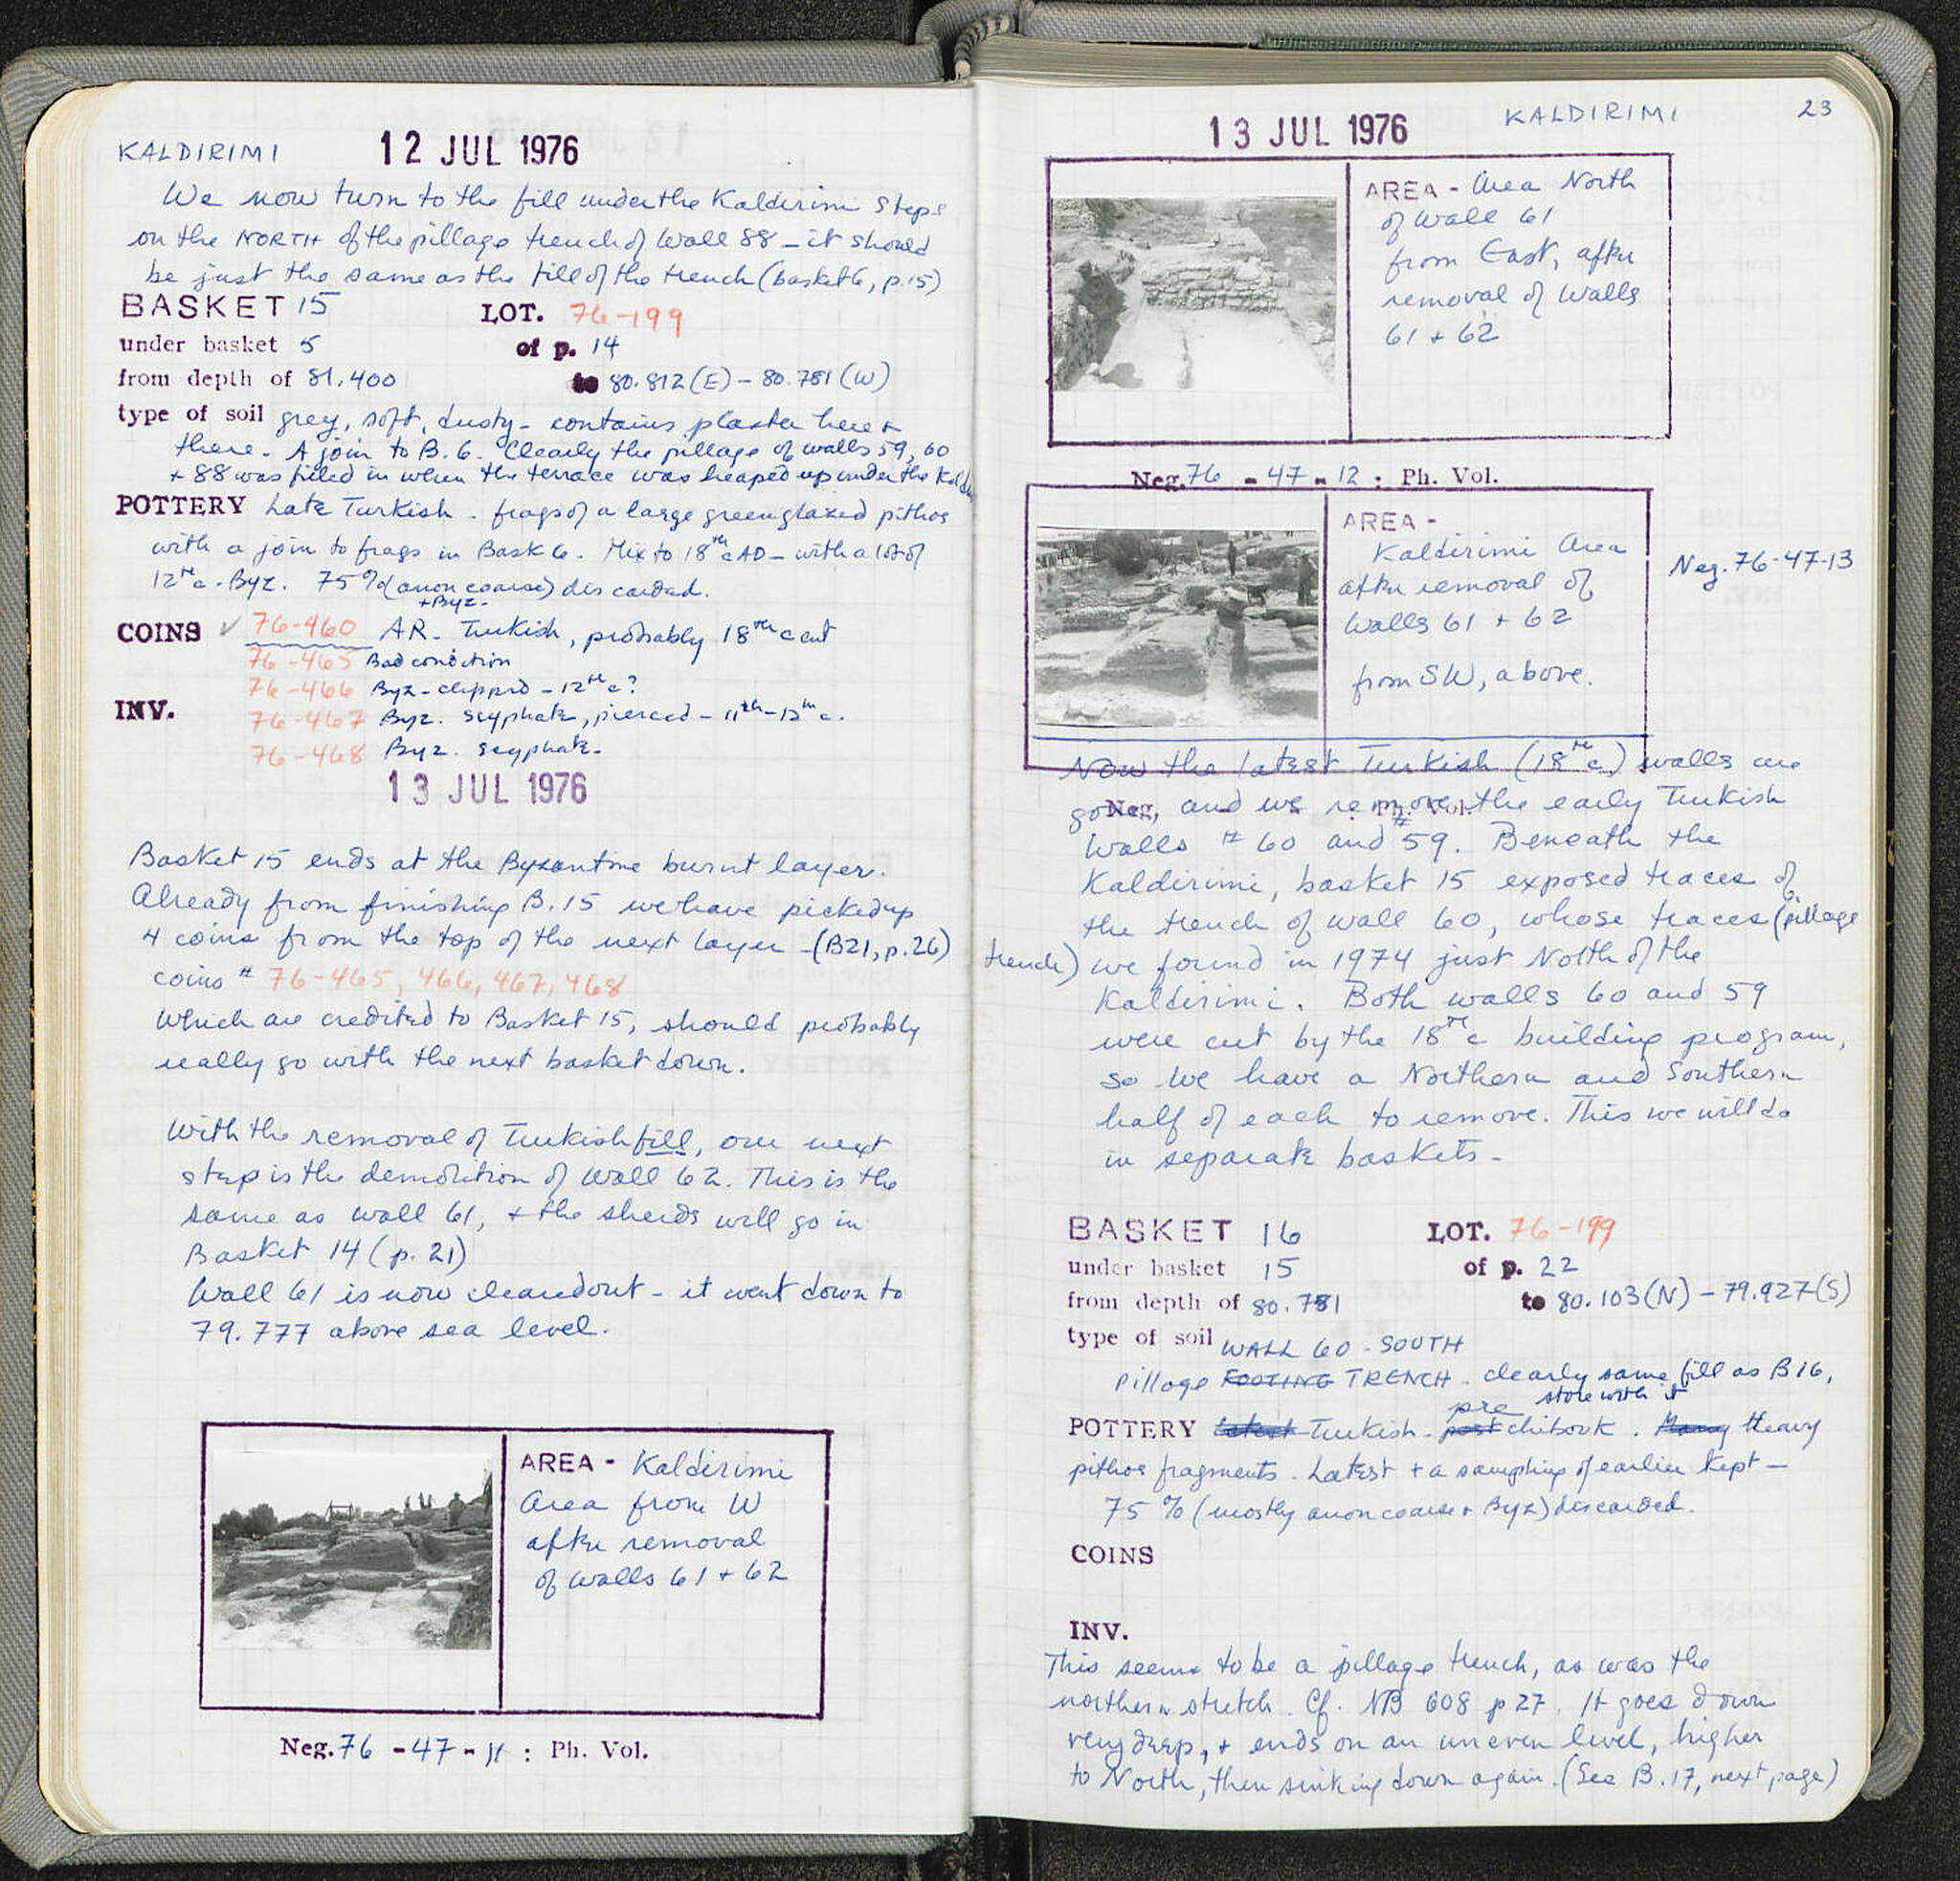 KALDIRIMI 12 JUL 1976
We now turn to the fill under the Kaldirimi steps
on the NORTH of the pillage trench of Wall 88 – it should
be just the same as the fill of the trench (basket 6, p.15)
BASKET 15 LOT. 76-199
under basket 5 of p. 14
from depth of 81.400 to 80.812(E) – 80.781(W)
type of soil grey, soft, dusty – contains plaster here +
there. A join to B.6. Clearly the pillage of walls 59, 60
+ 88 was filled in when the terrace was heaped up under the
POTTERY Late Turkish. frags of a large green glazed pithos
with a join to frags in Bask 6. Mix to 18th c AD – with a lot of
12th c. Byz. 75% (anon coarse) discarded.
+ Byz.
COINS ✓ 76-460 AR. Turkish, probably 18th cent
76-465 Bad condition
76-466 Byz – clipped – 12th c?
INV. 76-467 Byz. scyphate, pierced – 11th-12th c.
76-468 Byz. scyphate.
13 JUL 1976
Basket 15 ends at the Byzantine burnt layer.
Already from finishing B.15 we have picked up
4 coins from the top of the next layer – (B21, p.26)
coins # 76-465, 466, 467, 468
which are credited to Basket 15, should probably
really go with the next basket down.
With the removal of Turkish fill, our next
step is the demolition of Wall 62. This is the
same as wall 61, + the sherds will go in
Basket 14 (p. 21)
Wall 61 is now cleaned out – it went down to
79.777 above sea level.
AREA - Kaldirimi
Area from W
after removal
of walls 61 + 62
Neg. 76 - 47 - 11 : Ph. Vol.
13 JUL 1976 KALDIRIMI 23
AREA - Area North
of Wall 61
from East, after
removal of Walls
61 + 62
Neg. 76 - 47 - 12 : Ph. Vol.
AREA -
Kaldirimi Area
after removal of
Walls 61 + 62
from SW, above.
Neg. 76-47-13
Neg. Ph. Vol.
Now the latest Turkish (18th c) walls are
gone, and we remove the early Turkish
Walls # 60 and #59. Beneath the
Kaldirimi, basket 15 exposed traces of
the trench of wall 60, whose traces (pillage
trench) we found in 1974 just North of the
Kaldirimi. Both walls 60 and 59
were cut by the 18th c building program,
so we have a Northern and Southern
half of each to remove. This we will do
in separate baskets –
BASKET 16 LOT. 76-199
under basket 15 of p. 22
from depth of 80.781 to 80.103(N) – 79.927(S)
type of soil WALL 60 - SOUTH
Pillage FOOTING TRENCH. clearly same fill as B16,
store with it
POTTERY Latest Turkish. post pre chibouk. Many Heavy
pithos fragments. Latest + a sampling of earlier kept –
75% (mostly anon coarse + Byz) discarded.
COINS
INV.
This seems to be a pillage trench, as was the
northern stretch. Cf. NB 608 p 27. It goes down
very deep, + ends on an uneven level, higher
to North, then sinking down again. (See B.17, next page)